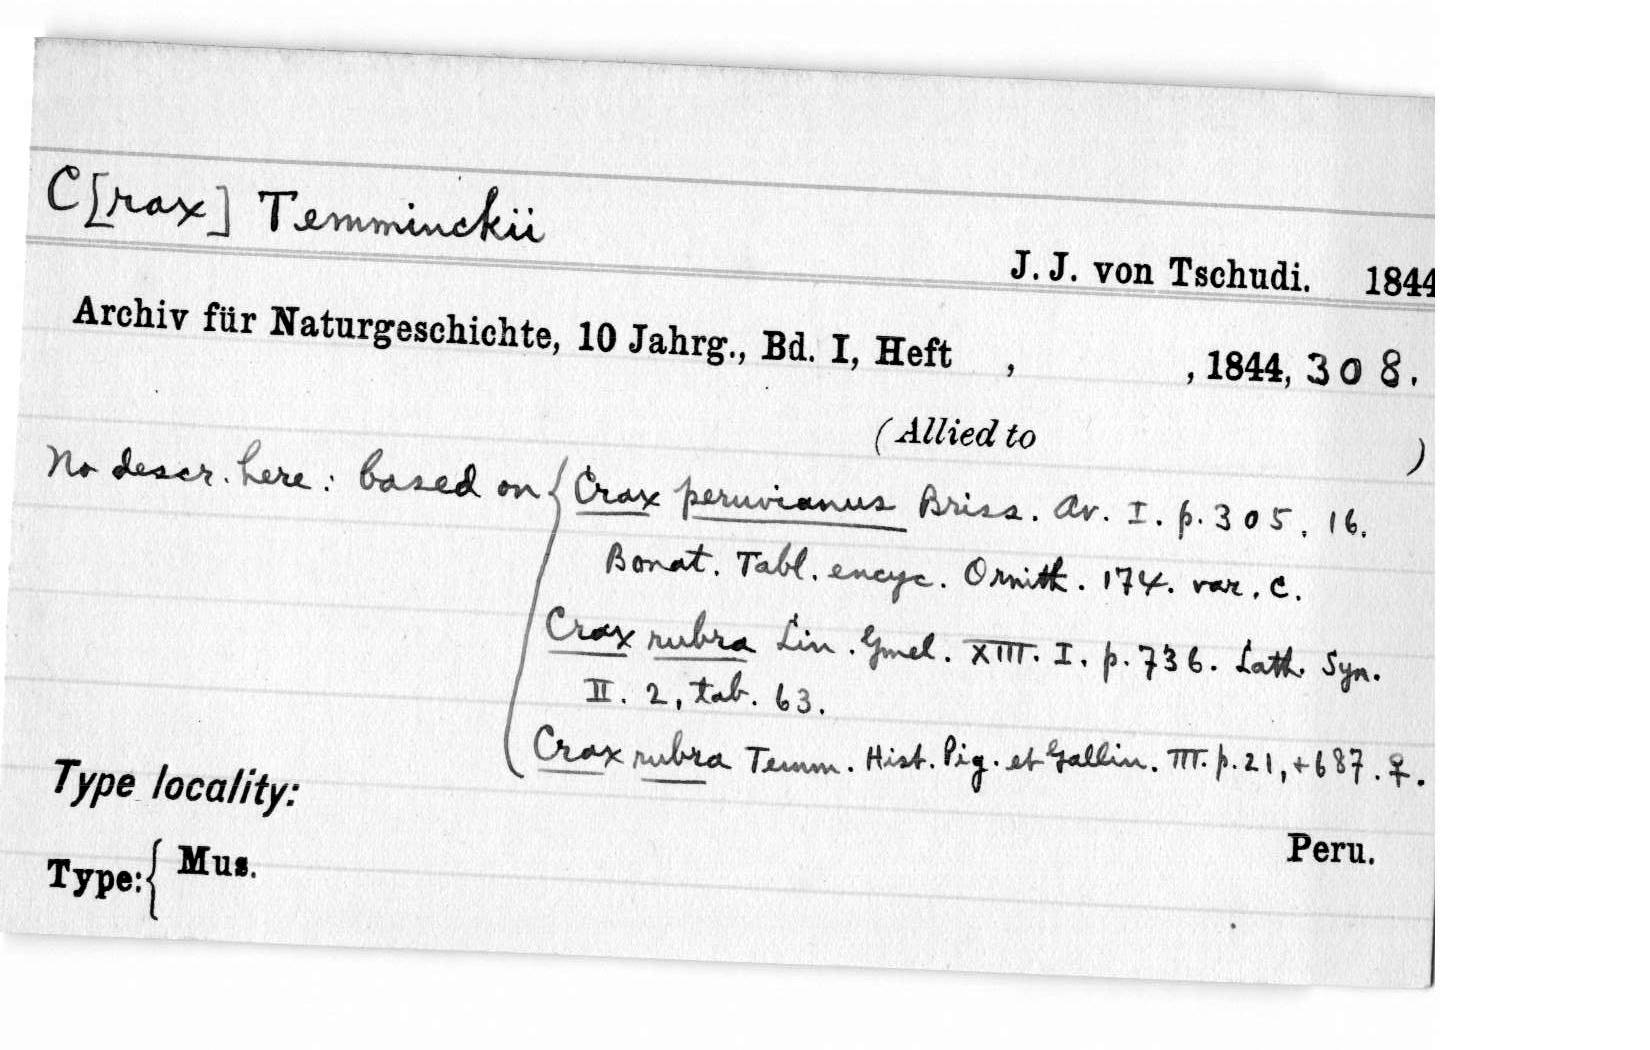 C[rax] Temminckii
J. J. von Tschudi. 1844
Archiv für Naturgeschichte, 10 Jahrg., Bd. I, Heft , , 1844, 308.
(Allied to )
No descr. here: based on { Crax peruvianus Briss. Av. I. p. 305, 16.
Bonat. Tabl. encyc. Ornith. 174. var. C.
Crax rubra Lin. Gmel. XIII. I. p. 736. Lath. Syn.
II. 2, tab. 63.
Crax rubra Temm. Hist. Pig. et Gallin. III. p. 21, + 687. ♀.
Type locality:
Peru.
Type: { Mus.